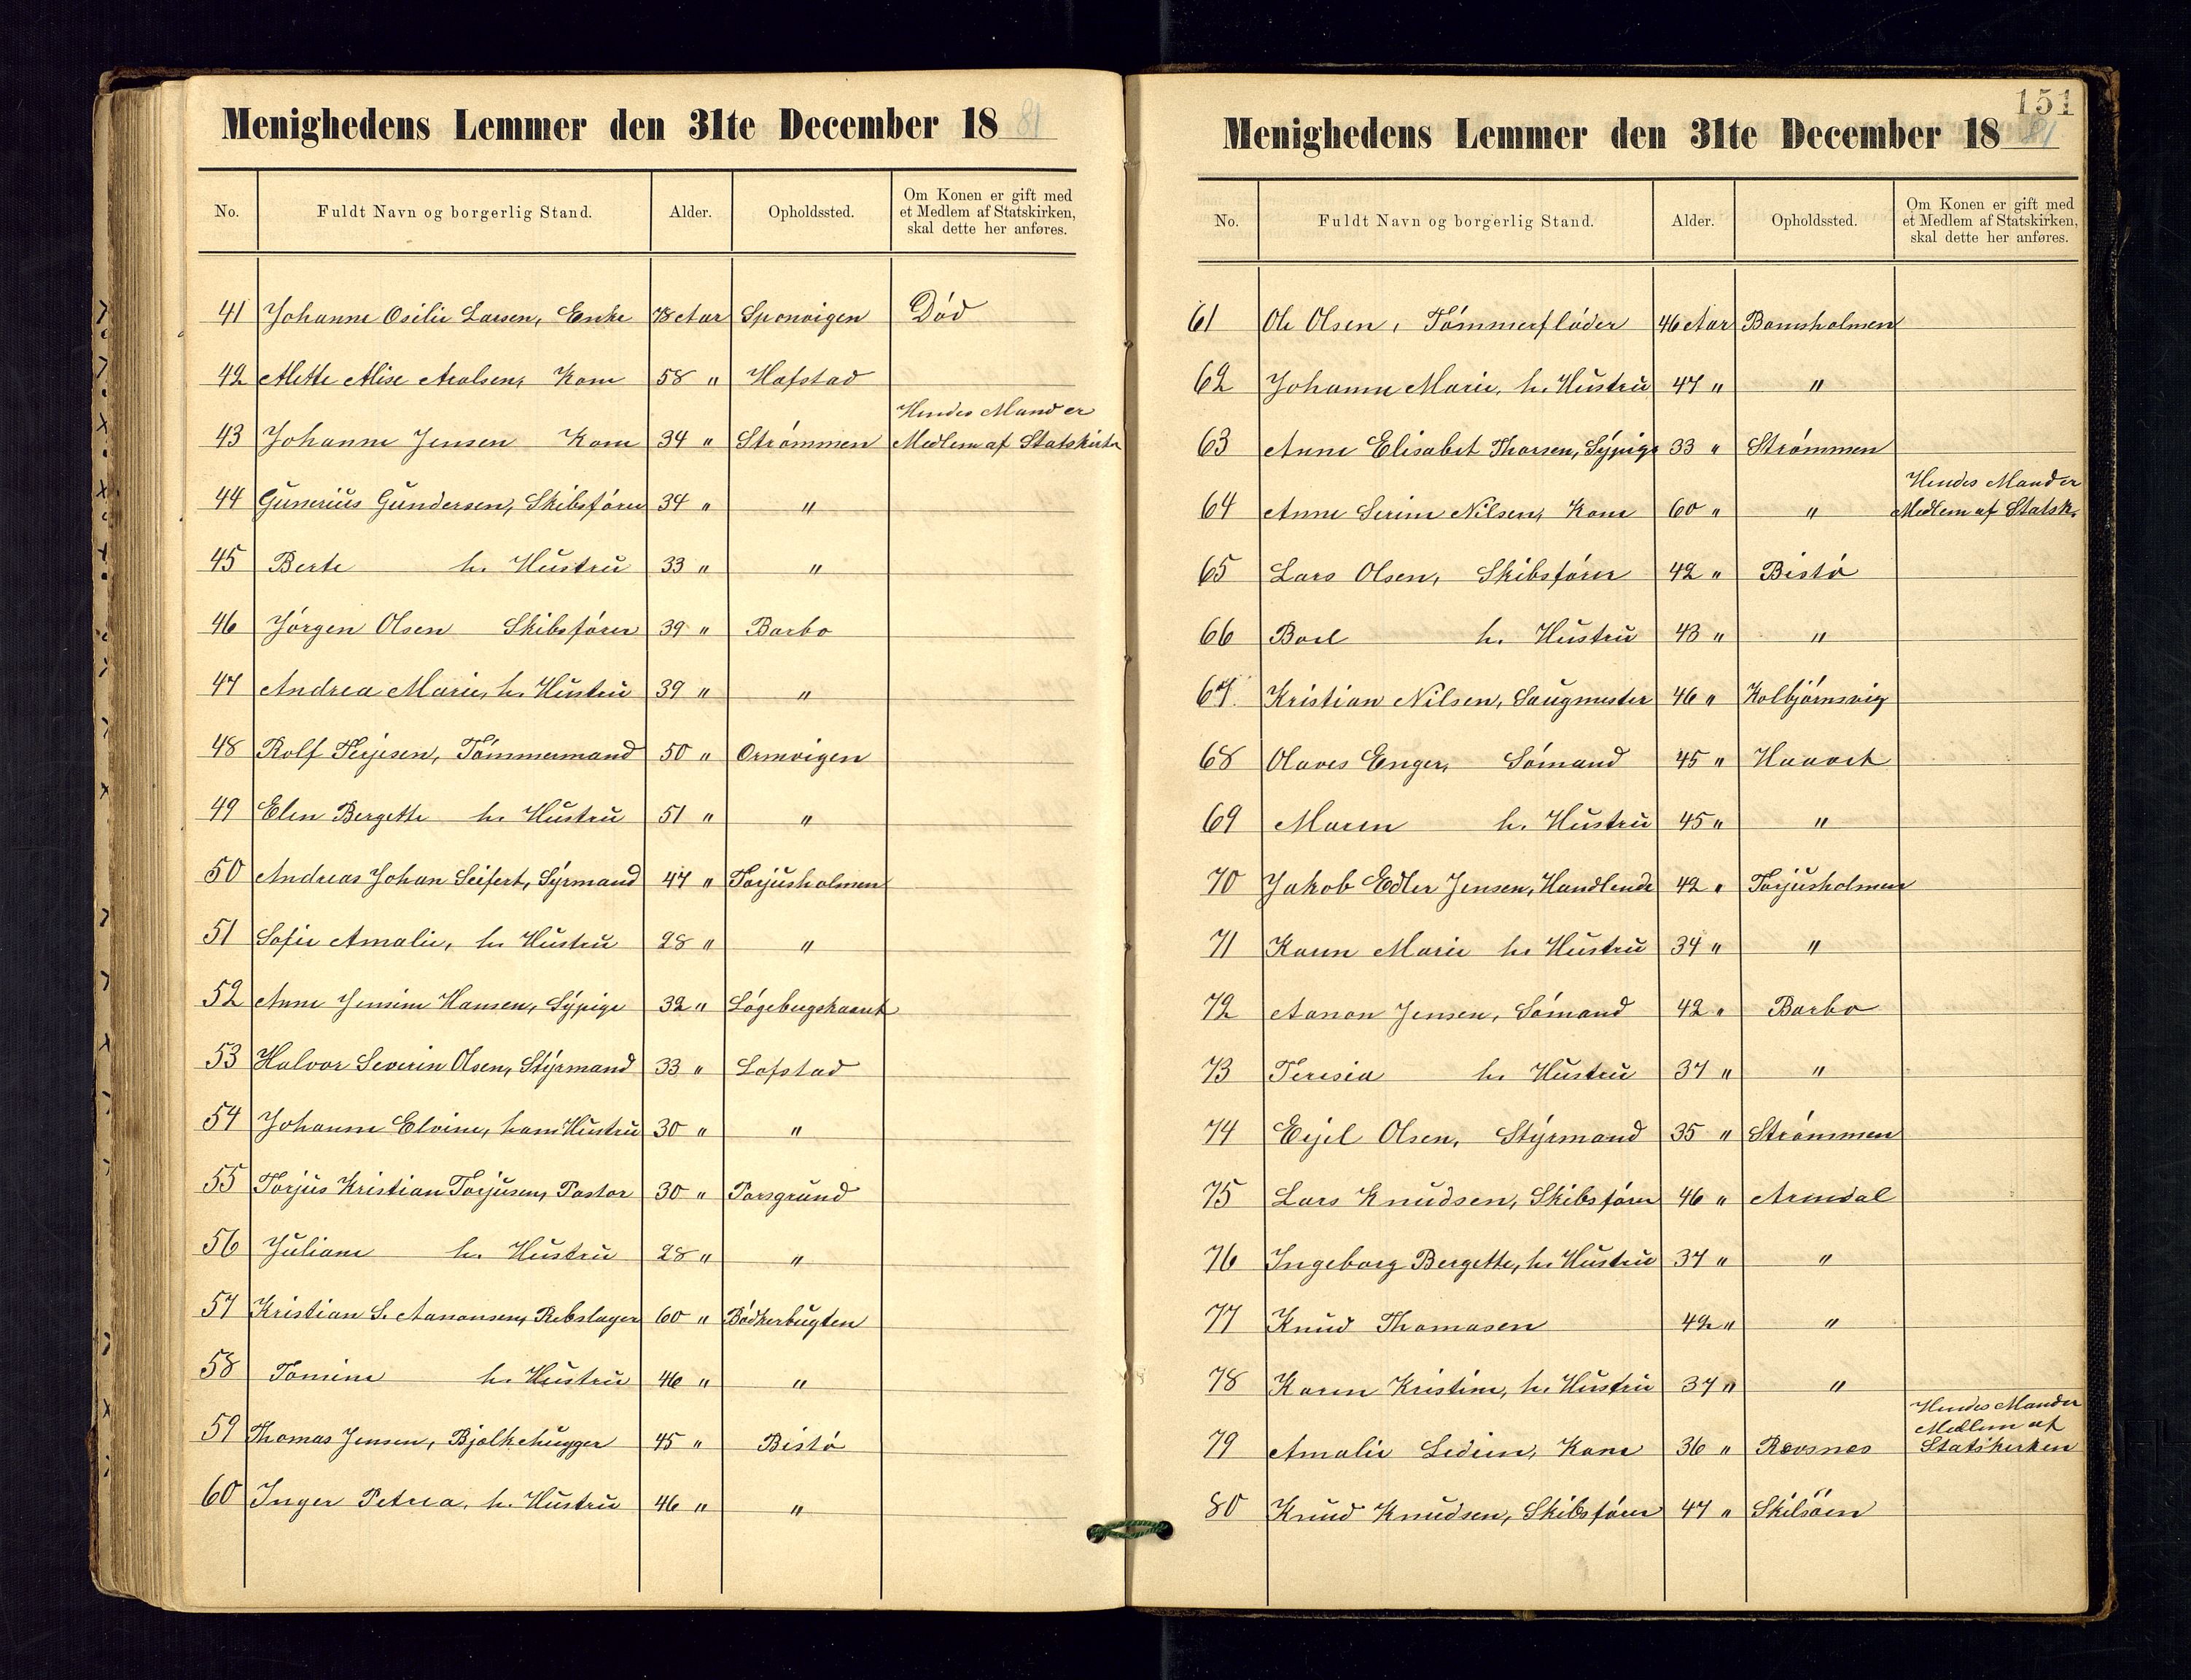 Menighedens Lemmer den 31te December 1881
No. Fuldt Navn og borgerlig Stand. Alder. Opholdssted. Om Konen er gift med
et Medlem af Statskirken,
skal dette her anføres.
41 Johanne Osilie Larsen, Enke 78 Aar Sponvigen Død
42 Alette Alise Aralsen, Kone 58 " Hafstad
Hendes Mand er
43 Johanne Jensen Kone 34 " Strømmen Medlem af Statskirken
44 Gunerius Gundersen, Skibsfører 34 " "
45 Berte h. Hustru 33 " "
46 Jørgen Olsen Skibsfører 39 " Barbo
47 Andrea Marie, h. Hustru 39 " "
48 Rolf Terjesen, Tømmermand 50 " Ormvigen
49 Elen Bergette h. Hustru 51 " "
50 Andreas Johan Seifert, Syrmand 47 " Torjusholmen
51 Sofie Amalie, h. Hustru 28 " "
52 Anne Jensine Hansen, Sypige 32 "
53 Halvor Severin Olsen, Styrmand 33 " Lofstad
54 Johanne Elvine, hans Hustru 30 " "
55 Torjus Kristian Torjusen, Pastor 30 " Porsgrund
56 Juliane h. Hustru 28 " "
57 Kristian S. Aanonsen, Rebslager 60 " Bødkerbugten
58 Tomine h. Hustru 46 " "
59 Thomas Jensen, Bjelkehugger 45 " Bistø
60 Inger Petrea, h. Hustru 46 " "
151
Menighedens Lemmer den 31te December 1881
No. Fuldt Navn og borgerlig Stand. Alder. Opholdssted. Om Konen er gift med
et Medlem af Statskirken,
skal dette her anføres.
61 Ole Olsen, Tømmerfløder 46 Aar Bomsholmen
62 Johanne Marie, h. Hustru 47 " "
63 Anne Elisabet Thorsen, Sypige 33 " Strømmen
Hendes Mand er
64 Anne Serine Nilsen, Kone 60 " " Medlem af Statsk.
65 Lars Olsen, Skibsfører 42 " Bistø
66 Boel h. Hustru 43 " "
67 Kristian Nilsen, Saugmester 46 " Kolbjørnsvig
68 Olaves Enger, Sømand 45 " Haavet
69 Maren h. Hustru 45 " "
70 Jakob Edler Jensen, Handlende 42 " Torjusholmen
71 Karen Marie h. Hustru 34 " "
72 Aanon Jensen, Sømand 42 " Barbo
73 Teresia h. Hustru 37 " "
74 Eijel Olsen, Styrmand 35 " Strømmen
75 Lars Knudsen, Skibsfører 46 " Arendal
76 Ingeborg Bergette, h. Hustru 37 " "
77 Knud Thomasen 42 " "
78 Karen Kristine, h. Hustru 37 " "
Hendes Mand er
Medlem af
79 Amalie Ledien, Kone 36 " Revsnes Statskirken
80 Knud Knudsen, Skibsfører 47 " Skilsøen